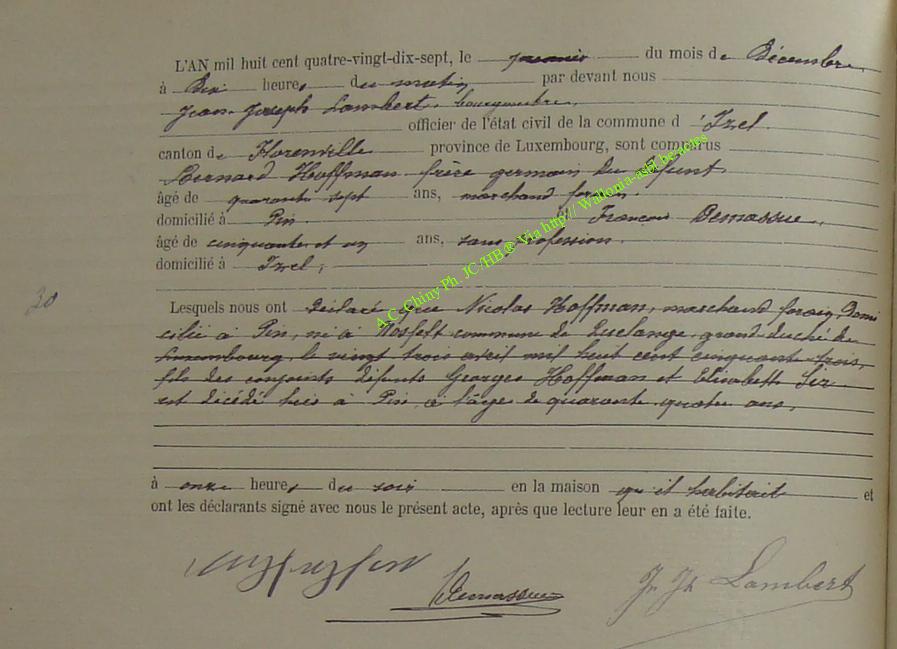 L'AN mil huit cent quatre-vingt-dix-sept, le premier du mois de Décembre
à Dix heures du matin par devant nous
Jean Joseph Lambert, bourgmestre,
officier de l'état civil de la commune d'Izel
canton de Florenville province de Luxembourg, sont comparus
Bernard Hoffman frère germain du défunt
âgé de quarante sept ans, marchand forain
domicilié à Pin & François Demassue,
âgé de cinquante et un ans, sans profession.
domicilié à Izel,
30
Lesquels nous ont Déclaré que Nicolas Hoffman, marchand forain, Domi
cilié à Pin, né à Nosfelt commune de grand-duché de
Luxembourg, le vingt trois avril mil huit cent cinquante trois,
fils des conjoints défunts Georges Hoffman et Elisabeth
est décédé hier à Pin, à l'âge de quarante quatre ans,
à onze heures du soir en la maison qu'il habitait et
ont les déclarants signé avec nous le présent acte, après que lecture leur en a été faite.
Demassue
Jn Jh Lambert
A.C. Chiny Ph. JC/HB® Via http:// Wallonia-asbl.be/actes